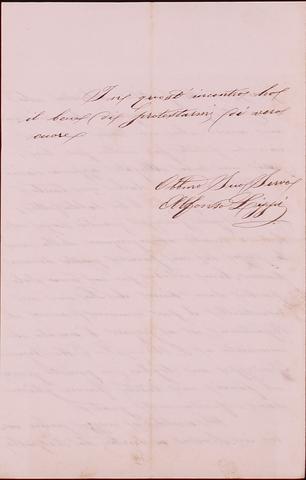 In quest' incontro ho
il bene di protestarmi di vero
cuore
Obbmo Suo Servo
Alfonso Lippi